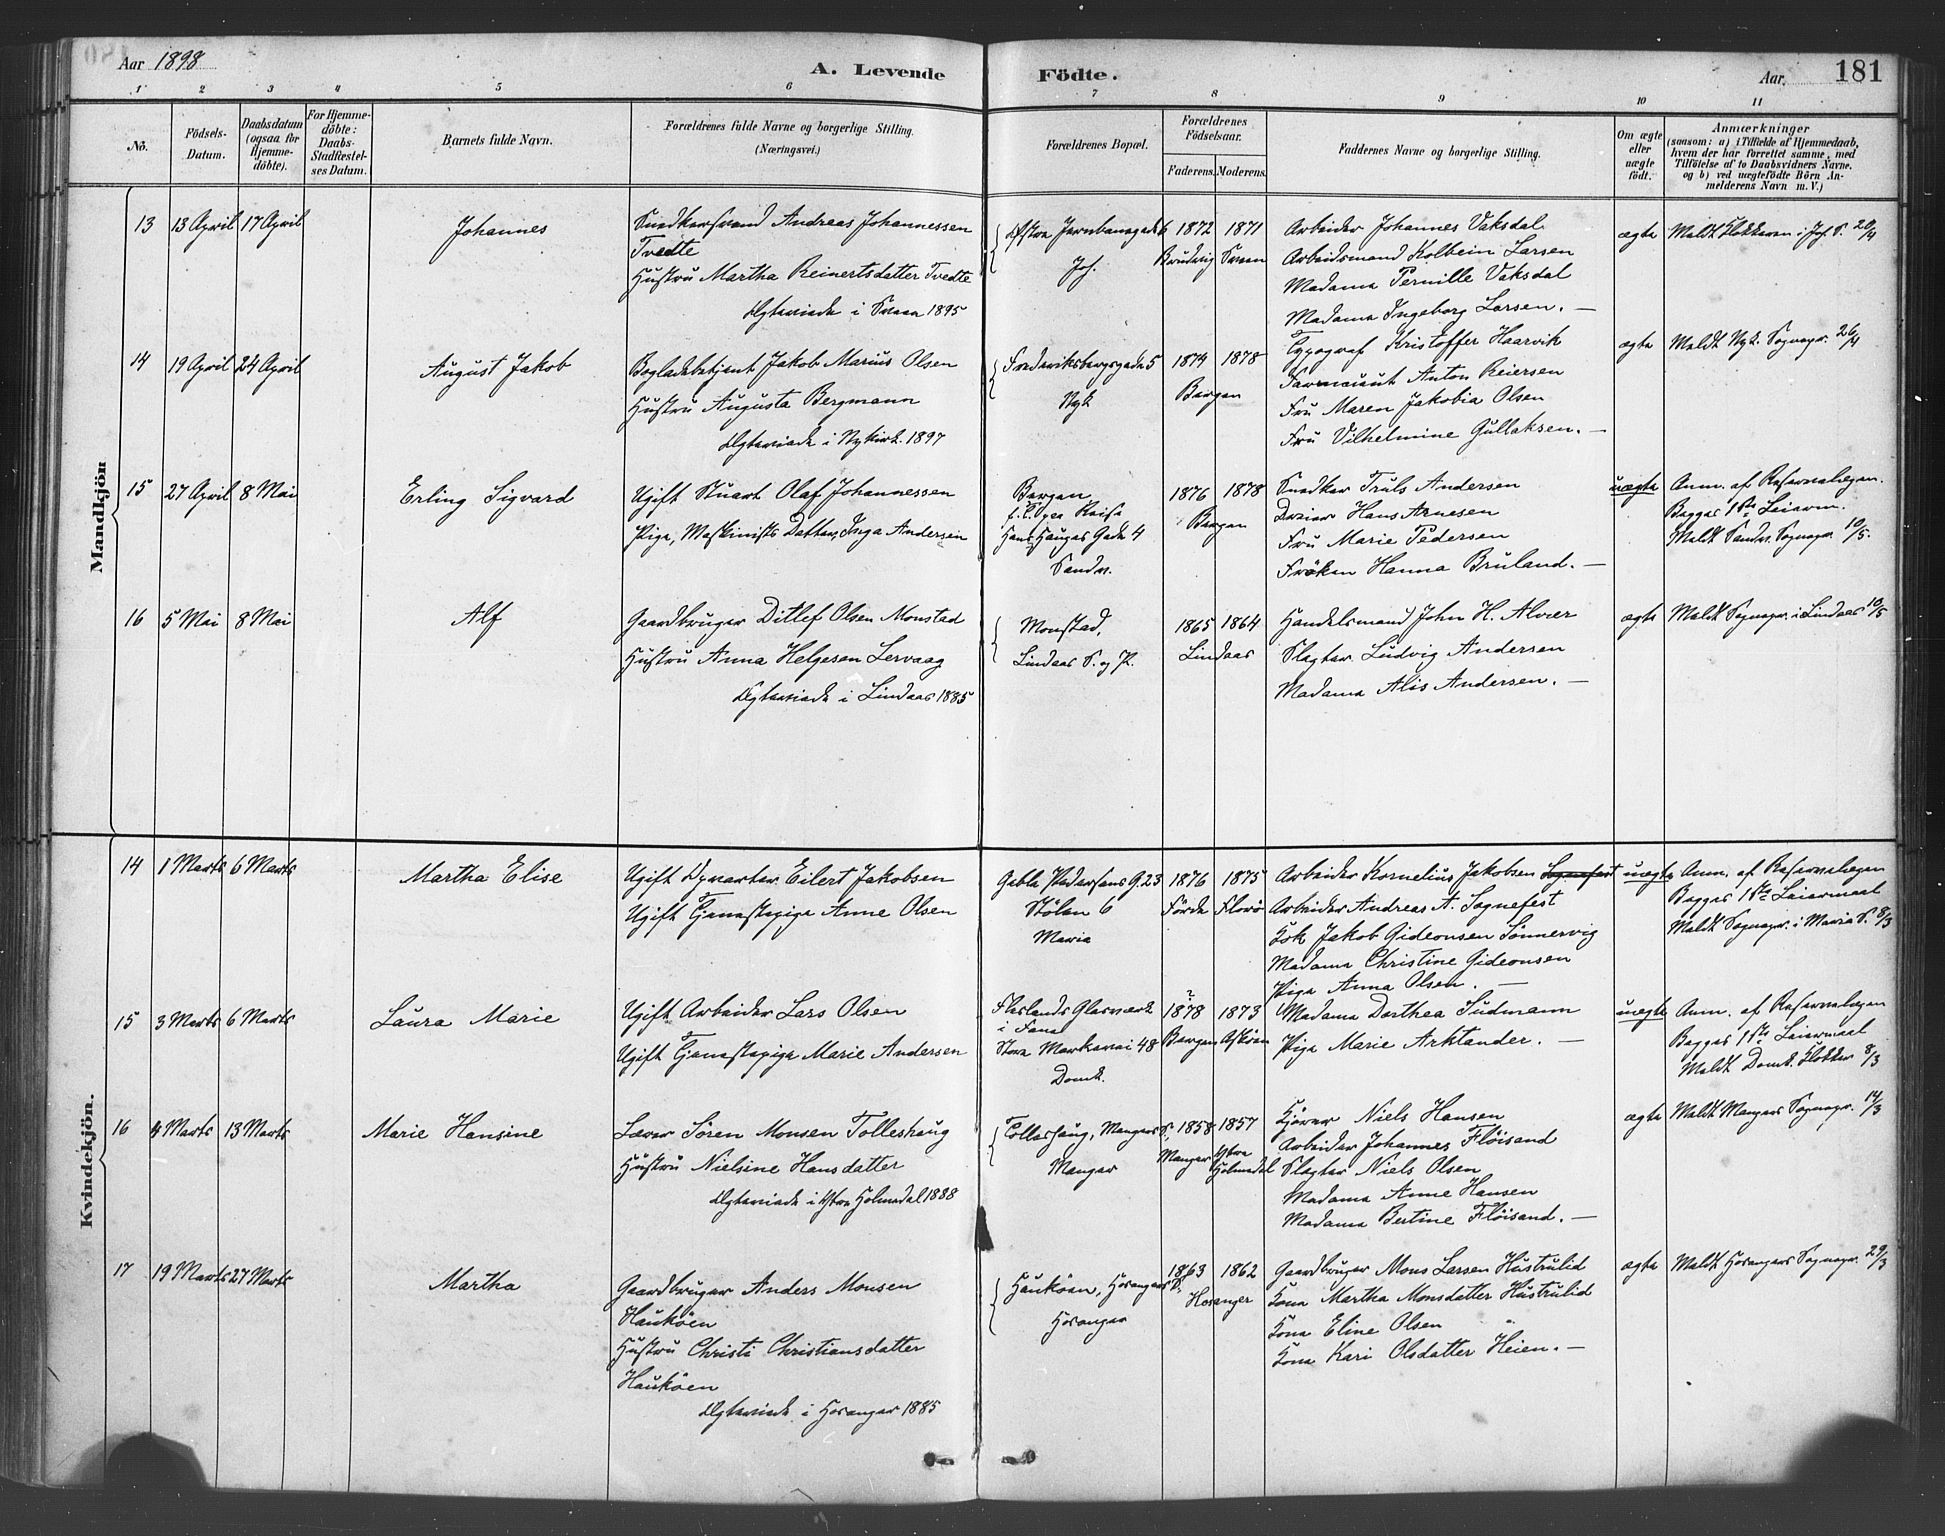 Aar 1898
A. Levende Födte.
Aar
181
1 2 3 4 5 6 7 8 9 10 11
No.
Födsels-Datum.
Daabsdatum (ogsaa for Hjemme-döbte).
For Hjemme-döbte: Daabs-Stadfæstel-ses Datum.
Barnets fulde Navn.
Forældrenes fulde Navne og borgerlige Stilling. (Næringsvei.)
Forældrenes Bopæl.
Forældrenes Födselsaar.
Faderens. Moderens.
Faddernes Navne og borgerlige Stilling.
Om ægte eller uægte födt.
Anmærkninger (saasom: a) i Tilfælde af Hjemmedaab, hvem der har forrettet samme, med Tilföielse af to Daabsvidners Navne. og b) ved uægtefödte Börn An-melderens Navn m. V.)
Mandkjön
13 13 April 17 April
Johannes
Snedkersvend Andreas Johannessen
Tvedte
Hustru Martha Reinertsdatter Tvedte
Ægteviede i 1895
Jernbanegade 6
Joh.
1872 1871
Bruvig
Arbeider Johannes Vaksdal
Arbeidsmand Kolbein Larsen
Madame Pernille Vaksdal
Madame Ingeborg Larsen. —
ægte
Meldt Klokkeren i Joh. S. 20/4
14 19 April 24 April
August Jakob
Bogladebetjent Jakob Marius Olsen
Hustru Augusta Bergmann
Ægteviede i Nykirk. 1897
Frederiksbergsgade 5
Nyk
1874 1878
Bergen
Typograf Kristoffer Haarvik
Farmaceut Anton Reiersen
Fru Maren Jakobia Olsen
Fru Vilhelmine Gullaksen. —
ægte
Meldt Nyk. Sognepr. 26/4
15 27 April 8 Mai
Erling Sigvard
Ugift Stuart Olaf Johannessen
Pige, Maskinists Datter, Inga Andersen
Bergen
Hans Hauges Gade 4
Sandv.
1876 1878
Bergen
Snedker Truls Andersen
Dreier Hans Arnesen
Fru Marie Pedersen
Fröken Hanna Bruland. —
uægte
Anm. af Reserselægen.
Begges 1ste Leierm.
Meldt Sandv. Sognepr. 10/5.
16 5 Mai 8 Mai
Alf
Gaardbruger Ditlef Olsen Monstad
Hustru Anna Helgesen Lervaag
Ægteviede i Lindaas 1885
Monstad,
Lindaas S. og P.
1865 1864
Lindaas
Handelsmand John H. Alver
Slagter Ludvig Andersen
Madame Alis Andersen. —
ægte
Meldt Sognepr. i Lindaas 10/5
Kvindekjön.
14 1 Marts 6 Marts
Martha Elise
Ugift Eilert Jakobsen
Ugift Tjenestepige Anne Olsen
Gabla Pedersens G. 23
Stölen 6
Maria
1876 1875
Förde Florö
Arbeider Kornelius Jakobsen Sognefest
Arbeider Andreas A. Sognefest
Kok Jakob Gideonsen Sönnervig
Madame Christine Gideonsen
Pige Anna Olsen. —
uægte
Anm. af
Begges 1ste Leiermaal
Meldt Sognepr. i Maria S. 8/3
15 3 Marts 6 Marts
Laura Marie
Ugift Arbeider Lars Olsen
Ugift Tjenestepige Marie Andersen
Fleslands Glasværk
i Fana
Store Markevei 48
Domk.
?
1878 1873
Bergen Asköen
Madame Dorthea Sudmann
Pige Marie Arktander. —
uægte
Anm. af
Begges 1ste Leiermaal
Meldt Domk. Klokker 8/3
16 4 Marts 13 Marts
Marie Hansine
Lærer Sören Monsen Tolleshaug
Hustru Nielsine Hansdatter
Ægteviede i Ytre Holmedal 1888
Tolleshaug, Mangers S.
Manger
1858 1857
Manger Ytre Holmedal
Niels Hansen
Arbeider Johannes Flöisand
Slagter Niels Olsen
Madame Anne Hansen
Madame Bertine Flöisand. —
ægte
Meldt Mangers Sognepr. 14/3
17 19 Marts 27 Marts
Martha
Gaardbruger Anders Monsen
Hauköen
Hustru Christi Christiansdatter
Hauköen
Ægteviede i Hosanger 1885
Hauköen, Hosangers S.
Hosanger
1863 1862
Hosanger
Gaardbruger Mons Larsen Hustrulid
Kone Martha Monsdatter Hustrulid
Kone Eline Olsen "
Kone Kari Olsdatter Heien. —
ægte
Meldt Hosangers Sognepr. 29/3